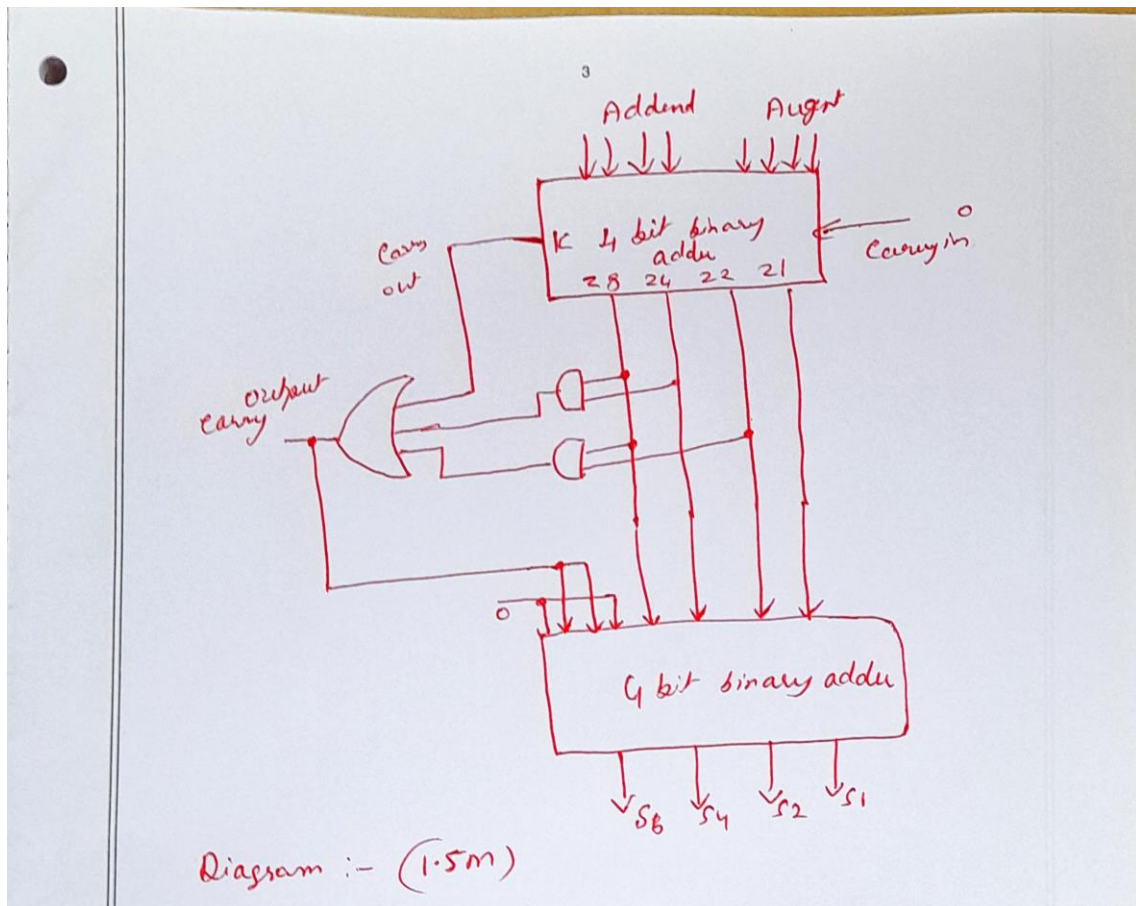 3
Addend Augnt
K 4 bit binary
addu
Carry
out
0
Carry in
Z8 Z4 Z2 Z1
Output
Carry
0
4 bit binary addu
S8 S4 S2 S1
Diagram :- (1.5m)